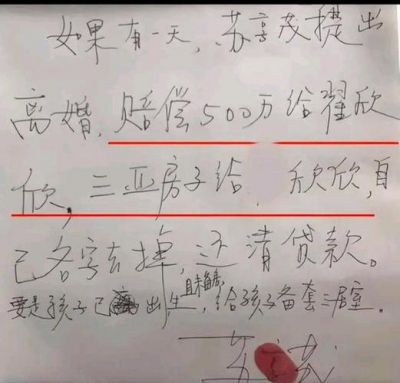 如果有一天,苏享茂提出
离婚,赔偿500万给翟欣
欣,三亚房子给 欣欣,自
己名字去掉,还清贷款。
要是孩子已出生,且未备房,给孩子备套三居室。